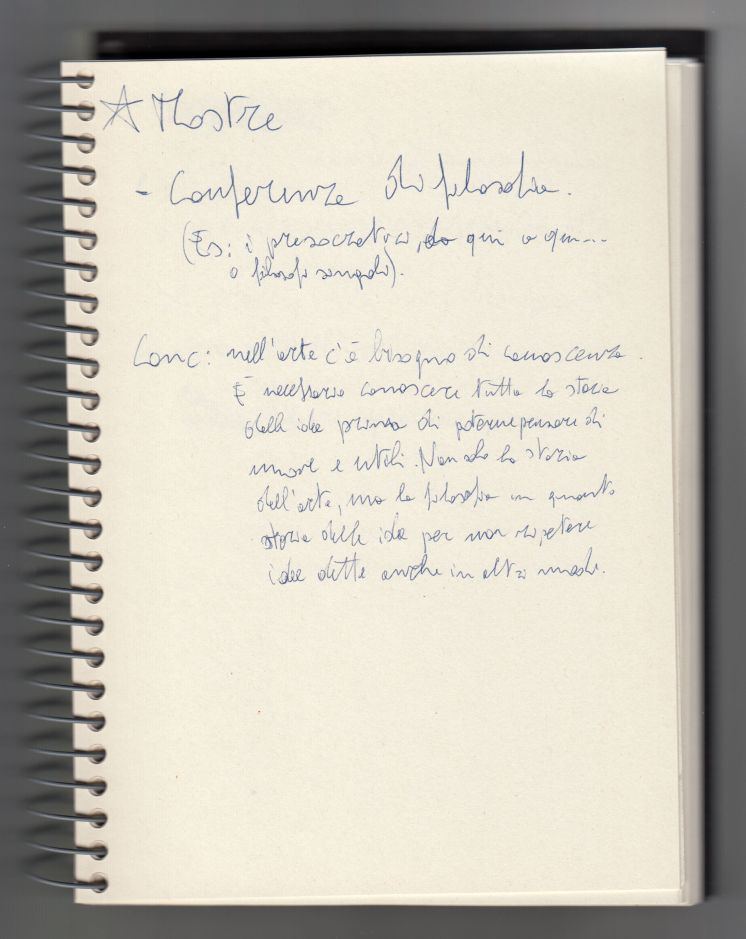 ☆ Mostre
- Conferenze di filosofia.
(Es: i presocratici, da qui a qui...
o filosofi singoli).
Conc: nell'arte c'è bisogno di conoscenza.
È necessario conoscere tutta la storia
delle idee prima di poterne pensare di
nuove e utili. Non solo la storia
dell'arte, ma la filosofia in quanto
storia delle idee per non ripetere
idee dette anche in altri modi.